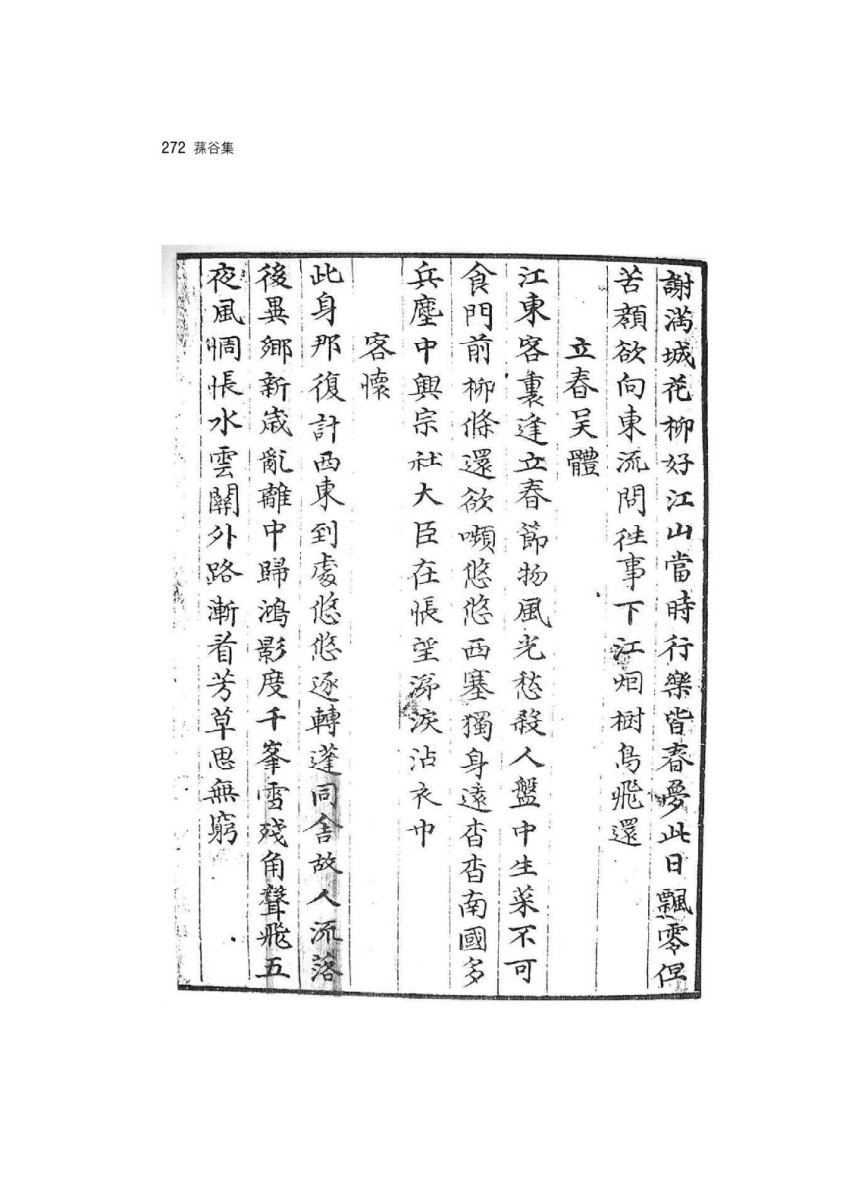 272 蓀谷集
謝滿城花柳好江山當時行樂皆春夢此日飄零俱
苦顏欲向東流問往事下江烟樹鳥飛還
立春吳體
江東客裏逢立春節物風光愁殺人盤中生菜不可
食門前柳條還欲嚬悠悠西塞獨身遠杳杳南國多
兵塵中興宗社大臣在悵望涕淚沾衣巾
客懷
此身那復計西東到處悠悠逐轉蓬同舍故人流落
後異鄉新歲亂離中歸鴻影度千峯雪殘角聲飛五
夜風惆悵水雲關外路漸看芳草思無窮